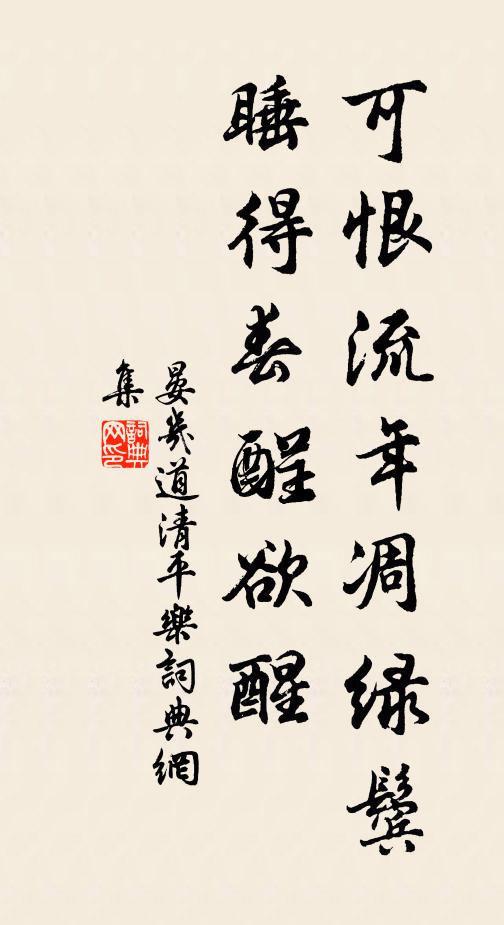 可恨流年凋绿鬓
睡得春酲欲醒
晏幾道清平樂詞典網
集
詞典
网印